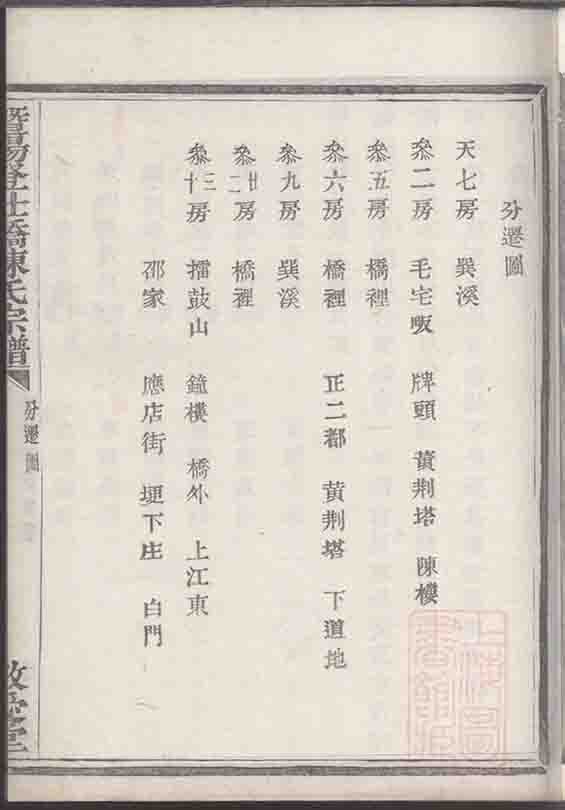 分遷圖
天七房 巽溪
叅二房 毛宅畈 牌頭 黃荆塔 陳樓
叅五房 橋裡
叅六房 橋裡 正二都 黃荆塔 下道地
叅九房 巽溪
叅廿二房 橋裡
叅三十房 擂鼓山 鐘樓 橋外 上江東
邵家 應店街 埂下庄 白門
暨陽登仕橋陳氏宗譜
分遷圖
上海圖書館藏